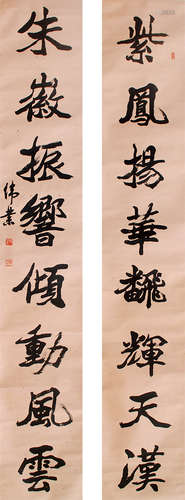 紫鳳揚華飜輝天漢
朱徽振響傾動風雲
偉業